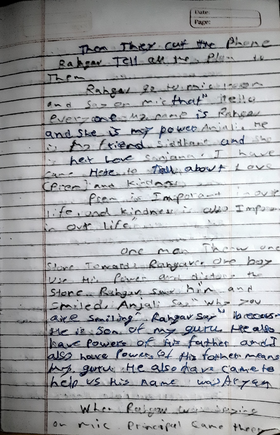 Date:
Page:
Then They cut the Phone
Rahgav Tell all the Plan to
Them
Rahgav go to mic
and Say on mic that" Hello
everyone my name is Rahgav
and She is my power Anjali, He
is my friend Siddharth and She
is her Love Sanjana. I have
came Here to Talk about Love
(Prem) and kindness
Prem is Important in our
life, and kindness is also Impor
in out life
one man Throw one
Stone Towards Rahgav one boy
use His Power and the
Stone. Rahgav Saw him and
Smiled Anjali Say "Why you
are Smiling" Rahgav Say" Because
He is Son of my guru He also
have Powers of His father and I
also have Powers of His father means
my guru. He also have came to
help us His name was Aryan
When Rahgav was
on mic Principal Came there